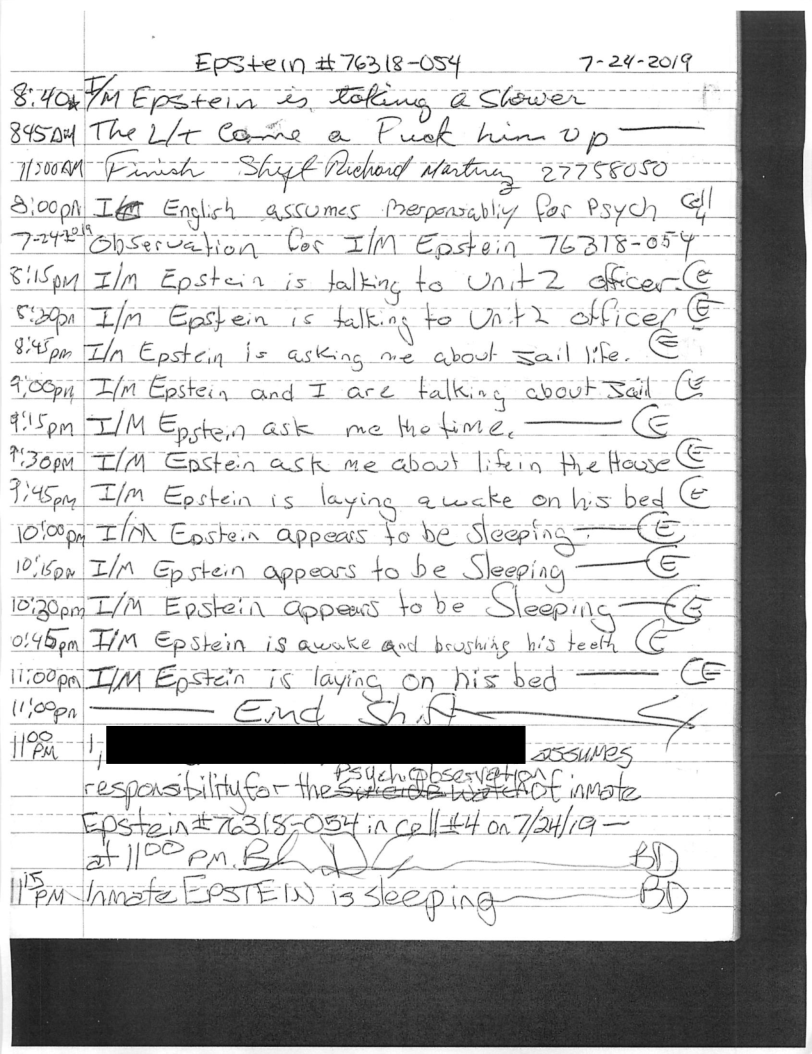 Epstein # 76318-054 7-24-2019
8:40A I/M Epstein is, taking a Shower
845AM The L/t Came a Puck him up
11:00AM Finish Sheft Richard Martinez 27758050
8:00pm I English assumes Responsabliy for Psych Cell 4
7-24-2019 Observation for I/M Epstein 76318-054
8:15pm I/M Epstein is talking to Unit 2 officer. CE
8:30pm I/m Epstein is talking to Unit 2 officer CE
8:45pm I/m Epstein is asking me about Jail life. CE
9:00pm I/M Epstein and I are talking about Jail CE
9:15pm I/M Epstein ask me the time. CE
9:30pm I/M Epstein ask me about life in the House CE
9:45pm I/M Epstein is laying awake on his bed CE
10:00pm I/M Epstein appears to be Sleeping. CE
10:15pm I/M Epstein appears to be Sleeping CE
10:30pm I/M Epstein appears to be Sleeping CE
0:45pm I/M Epstein is awake and brushing his teeth CE
11:00pm I/M Epstein is laying on his bed CE
11:00pm End Shift
11:00 PM I, assumes
Psych Observation
responsibility for the suicide watch of inmate
Epstein # 76318-054 in cell #4 on 7/24/19 —
at 11:00 PM. BD
11:15 PM Inmate EPSTEIN is sleeping BD